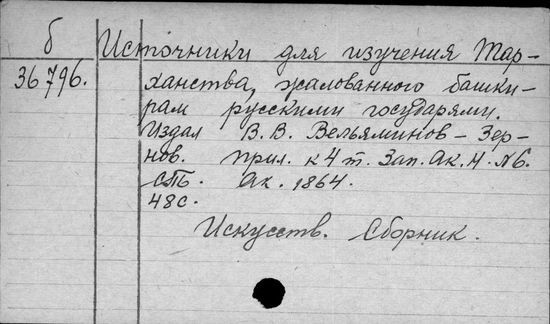 б Источники для изучения Тар-
36796. ханства, жалованного башки-
рам русскими государями.
Издал В. В. Вельяминов-Зер-
нов. Прил. к 4 т. Зап. Ак. Н. №6.
СПб. Ак. 1864.
48 с.
Искусств. Сборник.